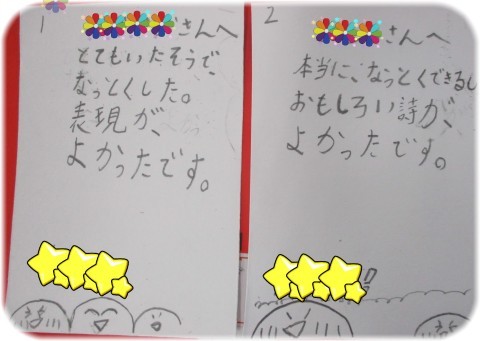 1
さんへ
とてもいたそうで、
なっとくした。
表現が、
よかったです。
2
さんへ
本当に、なっとくできるし
おもしろい詩が、
よかったです。